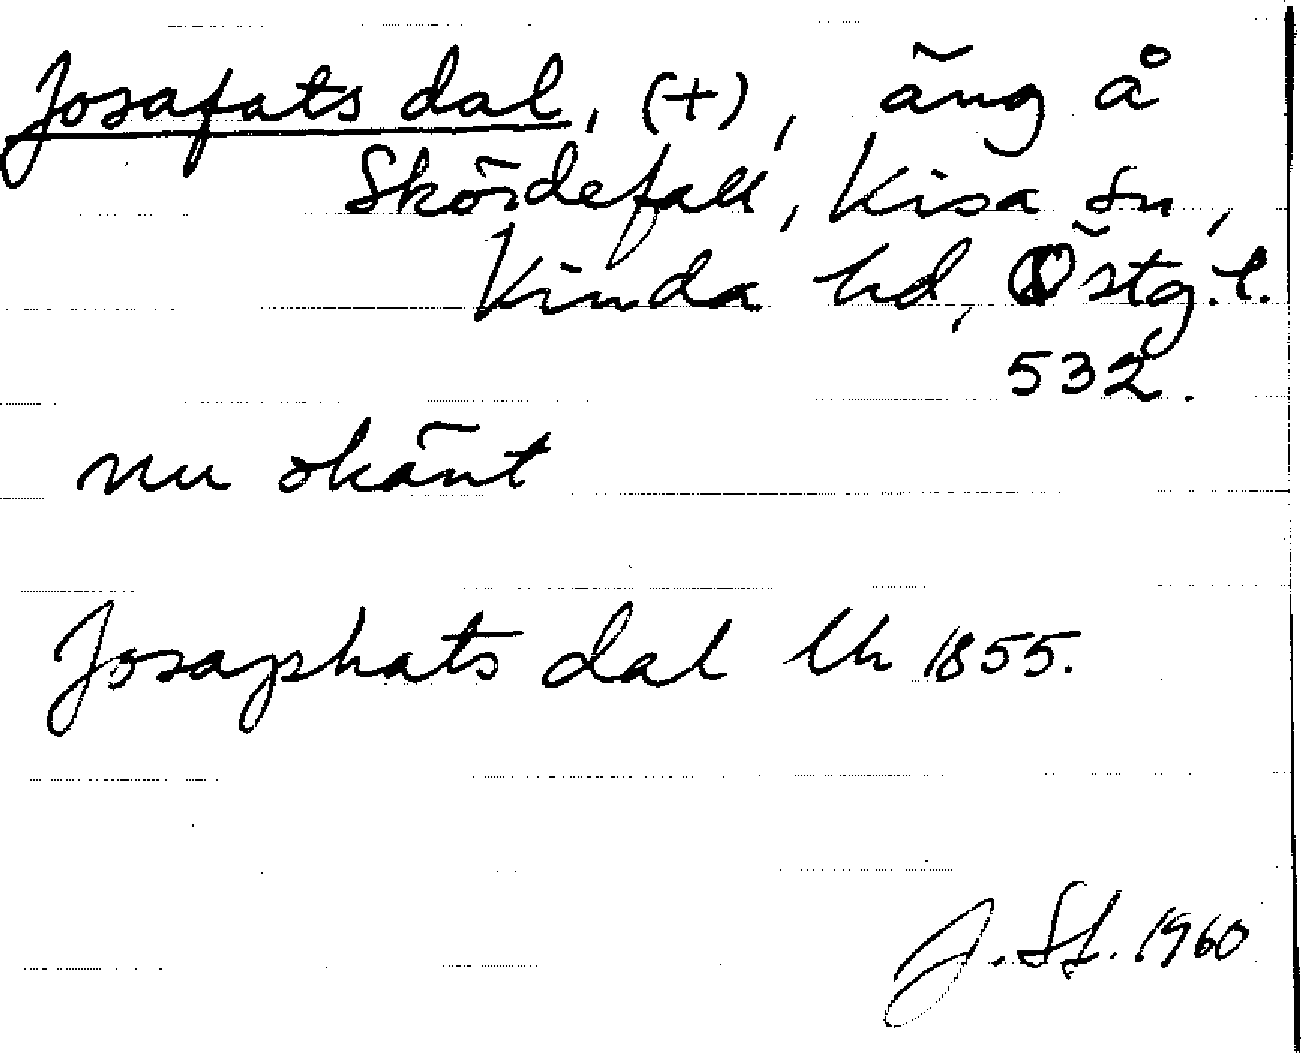 Josafats dal, (+), äng å
Skördefall, Kisa sn,
Kinda hd, Östg. l.
532.
nu okänt
Josaphats dal Uh 1855.
J. Sf. 1960